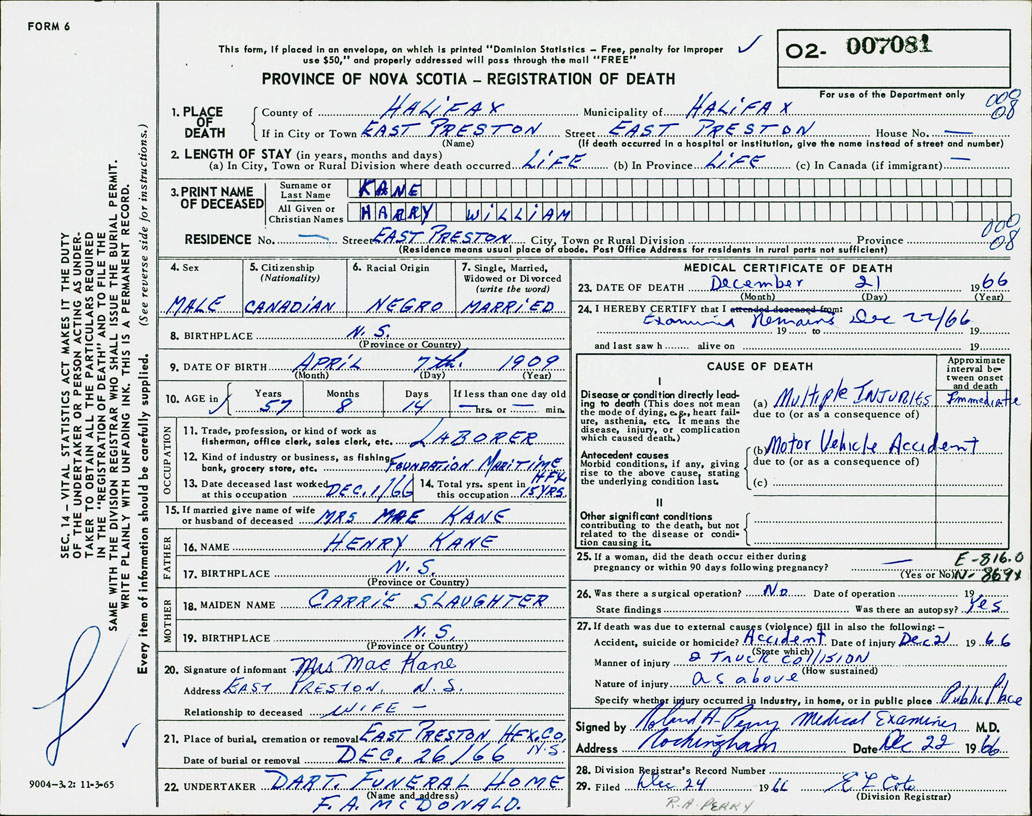 FORM 6
This form, if placed in an envelope, on which is printed "Dominion Statistics – Free, penalty for improper
use $50," and properly addressed will pass through the mail "FREE"
PROVINCE OF NOVA SCOTIA – REGISTRATION OF DEATH
02- 007081
For use of the Department only
000
08
1. PLACE OF DEATH
County of HALIFAX Municipality of HALIFAX
If in City or Town EAST PRESTON Street EAST PRESTON House No. —
(Name) (If death occurred in a hospital or institution, give the name instead of street and number)
2. LENGTH OF STAY (in years, months and days)
(a) In City, Town or Rural Division where death occurred LIFE (b) In Province LIFE (c) In Canada (if immigrant) —
3. PRINT NAME OF DECEASED
Surname or Last Name KANE
All Given or Christian Names HARRY WILLIAM
000
08
RESIDENCE No. — Street EAST PRESTON City, Town or Rural Division Province
(Residence means usual place of abode. Post Office Address for residents in rural parts not sufficient)
4. Sex MALE
5. Citizenship (Nationality) CANADIAN
6. Racial Origin NEGRO
7. Single, Married, Widowed or Divorced (write the word) MARRIED
8. BIRTHPLACE N.S.
(Province or Country)
9. DATE OF BIRTH APRIL 7th. 1909
(Month) (Day) (Year)
10. AGE in Years 57 Months 8 Days 14 If less than one day old hrs. or min.
OCCUPATION
11. Trade, profession, or kind of work as
fisherman, office clerk, sales clerk, etc. LABORER
12. Kind of industry or business, as fishing,
bank, grocery store, etc. FOUNDATION MARITIME
HFX.
13. Date deceased last worked
at this occupation DEC. 1/66
14. Total yrs. spent in
this occupation 15 YRS.
15. If married give name of wife
or husband of deceased MRS MAE KANE
FATHER
16. NAME HENRY KANE
17. BIRTHPLACE N.S.
(Province or Country)
MOTHER
18. MAIDEN NAME CARRIE SLAUGHTER
19. BIRTHPLACE N.S.
(Province or Country)
20. Signature of informant Mrs Mae Kane
Address EAST PRESTON, N.S.
Relationship to deceased WIFE –
21. Place of burial, cremation or removal EAST PRESTON HFX. CO.
N.S.
Date of burial or removal DEC. 26/66
22. UNDERTAKER DART. FUNERAL HOME
(Name and address)
F.A. McDONALD.
MEDICAL CERTIFICATE OF DEATH
23. DATE OF DEATH December 21 1966
(Month) (Day) (Year)
24. I HEREBY CERTIFY that I attended deceased from:
Examined Remains Dec 22/66
19 to 19
and last saw h alive on 19
CAUSE OF DEATH
Approximate interval between onset and death
I
Disease or condition directly leading to death (This does not mean
the mode of dying, e.g., heart failure, asthenia, etc. It means the
disease, injury, or complication
which caused death.)
(a) Multiple INJURIES Immediate
due to (or as a consequence of)
Antecedent causes
Morbid conditions, if any, giving
rise to the above cause, stating
the underlying condition last.
(b) Motor Vehicle Accident
due to (or as a consequence of)
(c)
II
Other significant conditions
contributing to the death, but not
related to the disease or condition causing it.
25. If a woman, did the death occur either during
pregnancy or within 90 days following pregnancy? —
(Yes or No)
E-816.0
N-869x
26. Was there a surgical operation? No Date of operation 19
State findings Was there an autopsy? Yes
27. If death was due to external causes (violence) fill in also the following: –
Accident, suicide or homicide? Accident Date of injury Dec 21 1966
(State which)
Manner of injury 2 TRUCK COLLISION
(How sustained)
Nature of injury as above
Specify whether injury occurred in industry, in home, or in public place Public Place
Signed by Roland A. Perry Medical Examiner M.D.
Address Rockingham Date Dec 22 1966
28. Division Registrar's Record Number
29. Filed Dec 24 1966
(Division Registrar)
R.A. PERRY
SEC. 14 – VITAL STATISTICS ACT MAKES IT THE DUTY
OF THE UNDERTAKER OR PERSON ACTING AS UNDERTAKER TO OBTAIN ALL THE PARTICULARS REQUIRED
IN THE "REGISTRATION OF DEATH" AND TO FILE THE
SAME WITH THE DIVISION REGISTRAR WHO SHALL ISSUE THE BURIAL PERMIT.
WRITE PLAINLY WITH UNFADING INK. THIS IS A PERMANENT RECORD.
Every item of information should be carefully supplied. (See reverse side for instructions.)
9004–3.2: 11-3-65